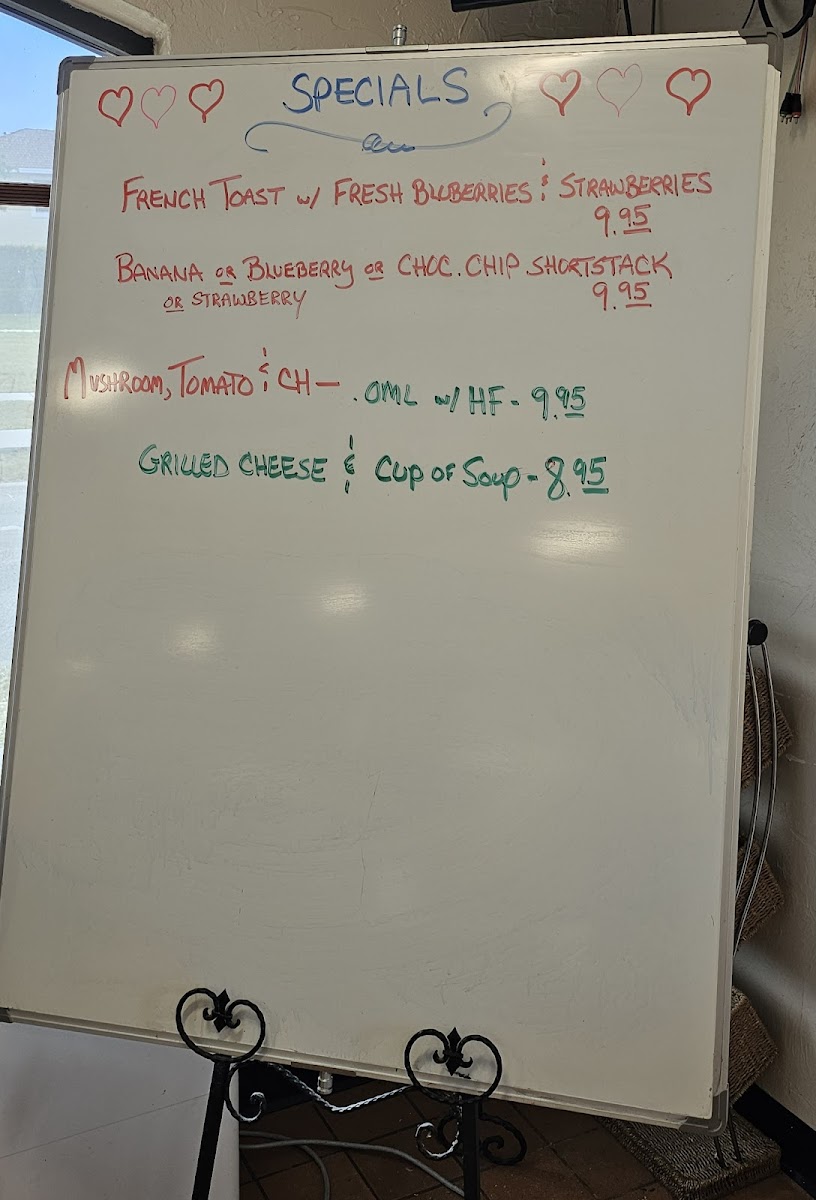 SPECIALS
FRENCH TOAST w/ FRESH BLUBERRIES & STRAWBERRIES
9.95
BANANA OR BLUEBERRY OR CHOC. CHIP SHORTSTACK
OR STRAWBERRY 9.95
MUSHROOM, TOMATO & CH — . OML w/ HF - 9.95
GRILLED CHEESE & CUP OF SOUP - 8.95